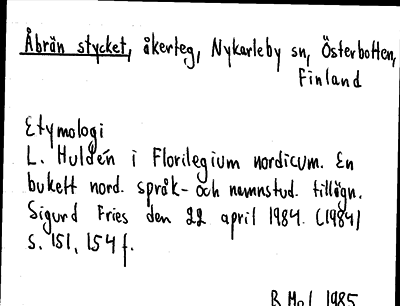 Åbrän stycket, åkerteg, Nykarleby sn, Österbotten,
Finland
Etymologi
L. Huldén i Florilegium nordicum. En
bukett nord. språk- och namnstud. tillägn.
Sigurd Fries den 22 april 1984. (1984)
s. 151, 154 f.
B Mol 1985